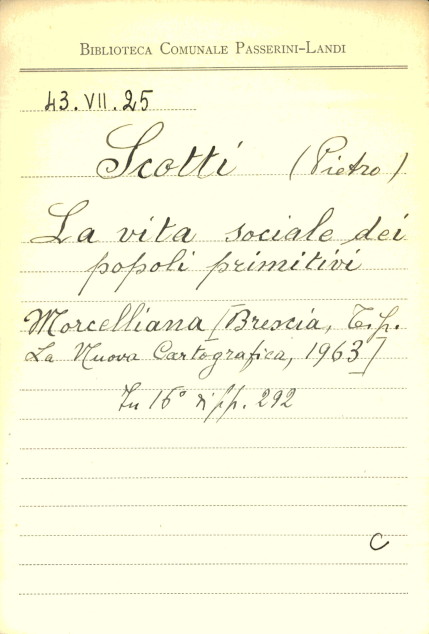 BIBLIOTECA COMUNALE PASSERINI-LANDI
43.VII.25
Scotti (Pietro)
La vita sociale dei
popoli primitivi
Morcelliana [Brescia, Tip.
La Nuova Cartografica, 1963]
In 16° di pp. 292
C